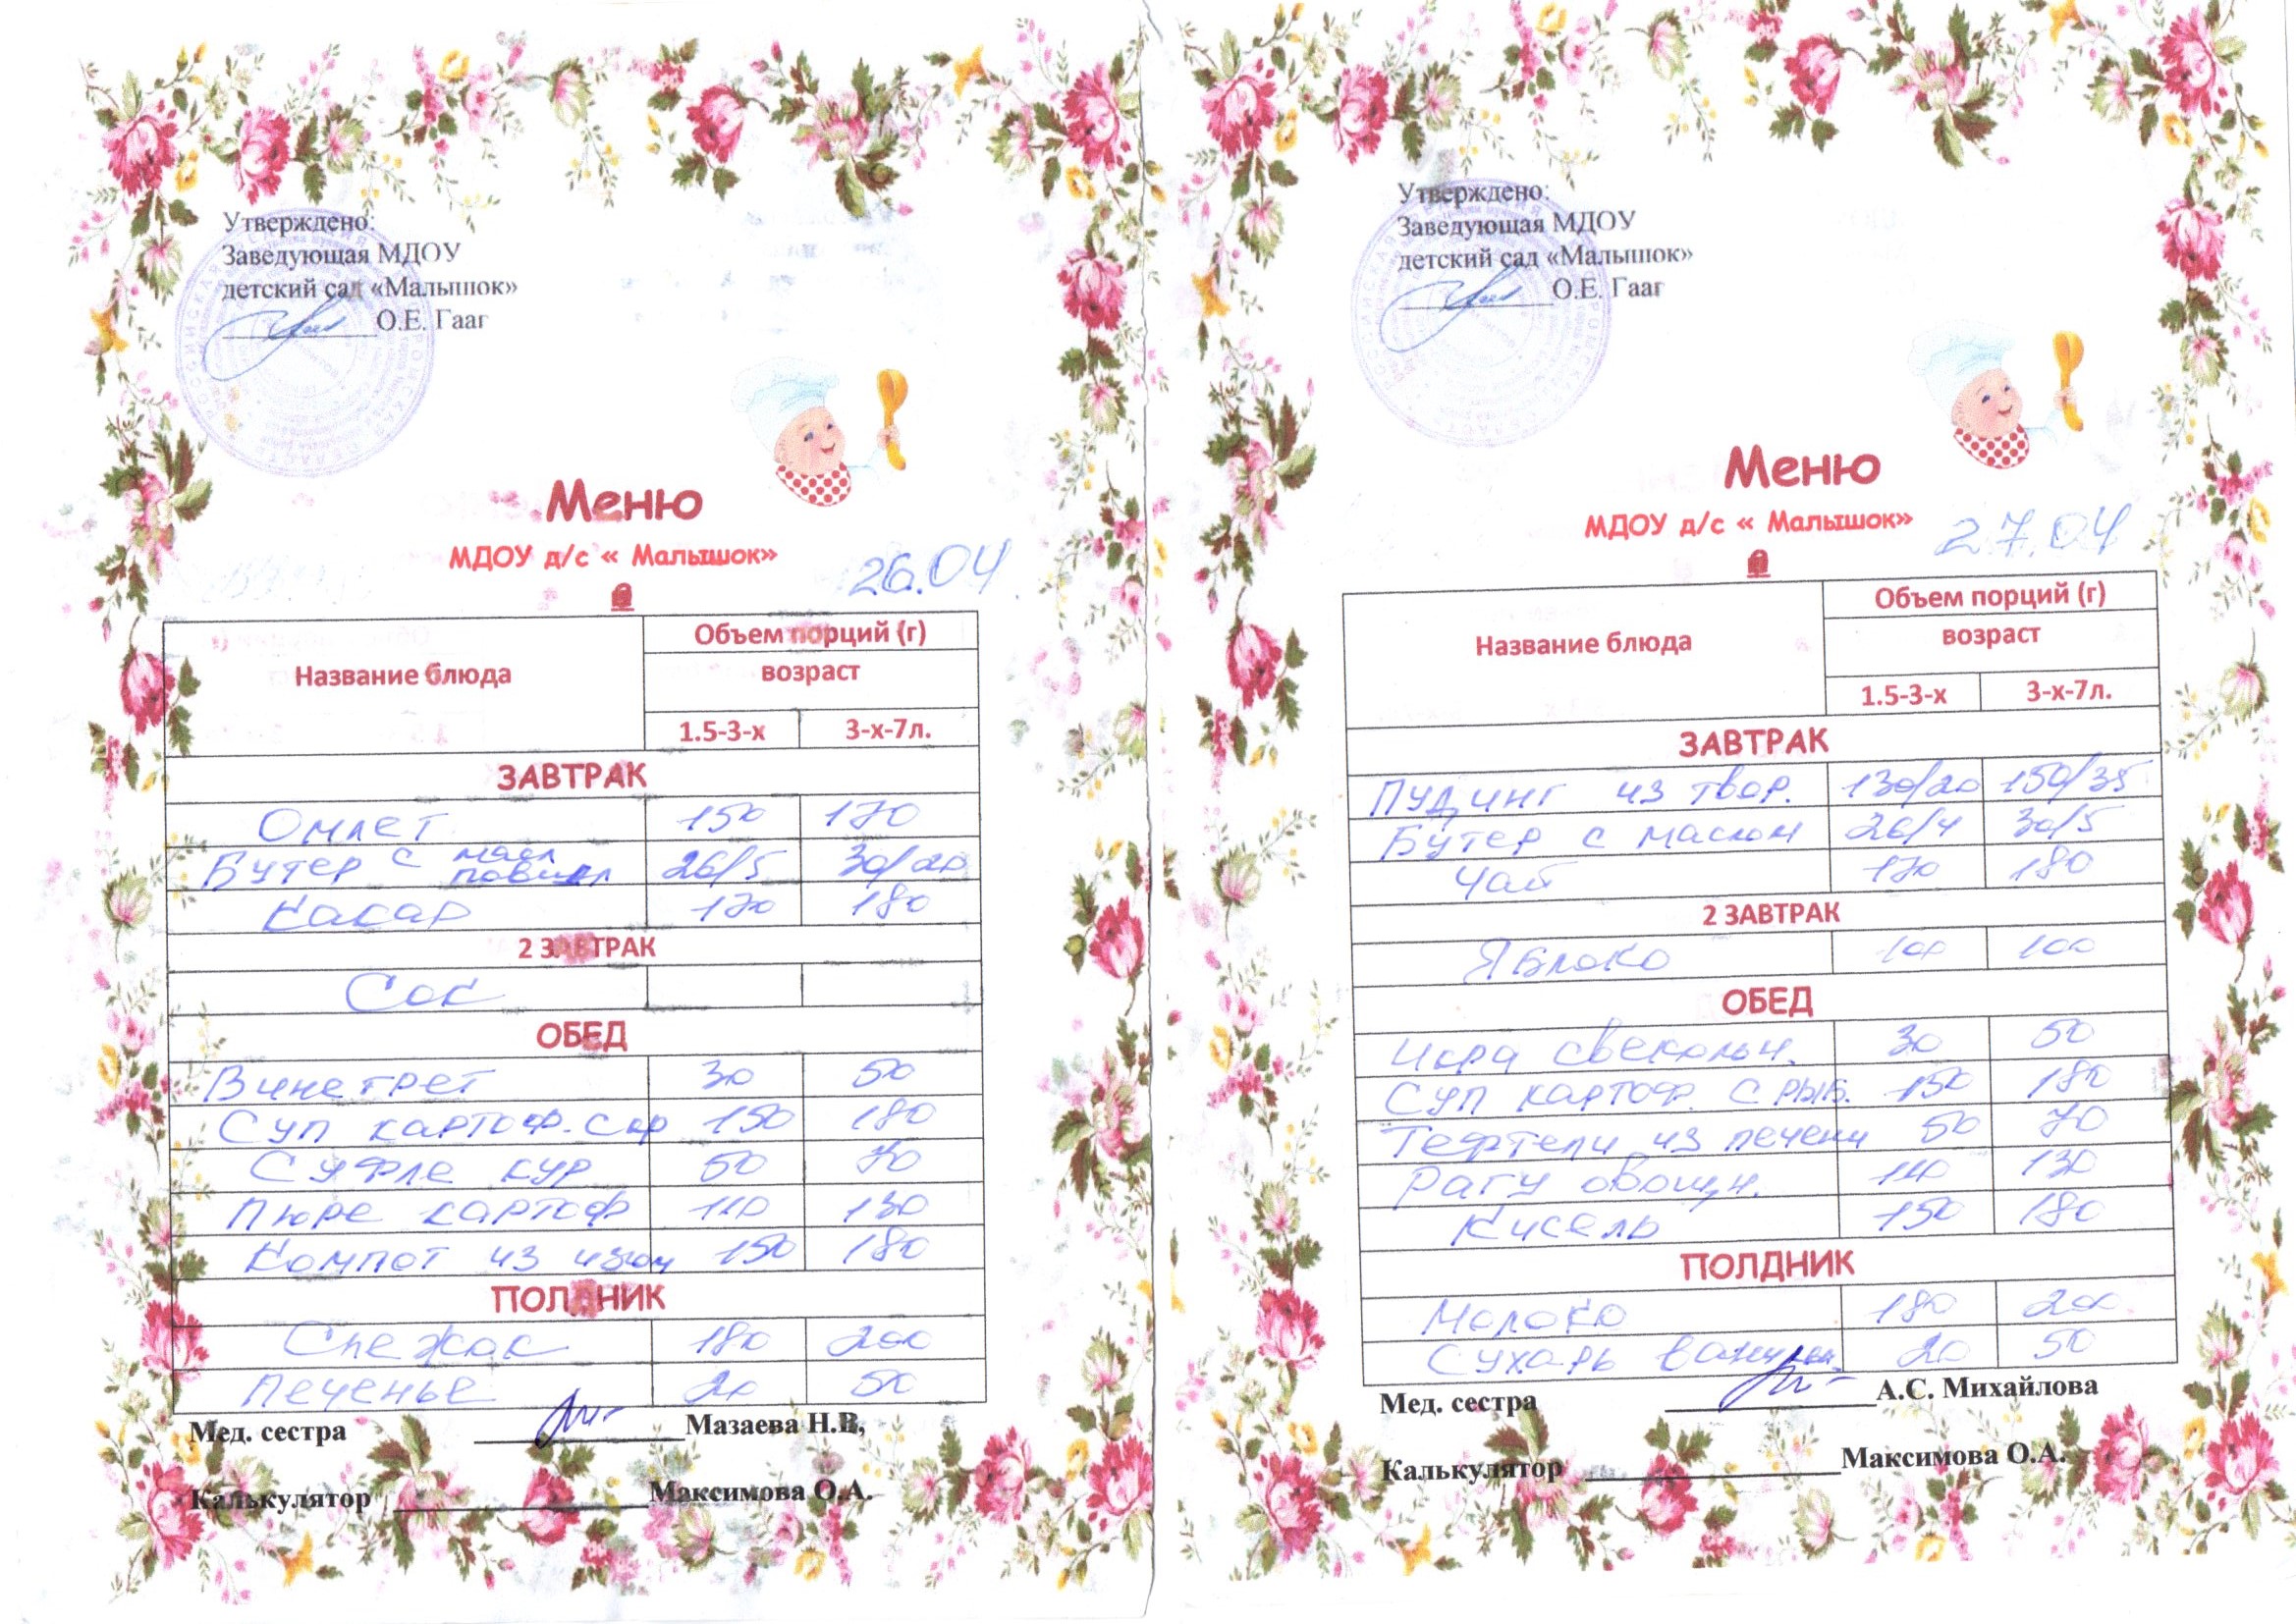 Утверждено:
Заведующая МДОУ
детский сад «Малышок»
О.Е. Гааг
Меню
МДОУ д/с « Малышок»
26.04
Название блюда
Объем порций (г)
возраст
1.5-3-х 3-х-7л.
ЗАВТРАК
Омлет 150 170
Бутер с масл повидл 26/5 30/20
Какао 170 180
2 ЗАВТРАК
Сок
ОБЕД
Винегрет 30 50
Суп картоф. 150 180
Суфле кур 50 70
Пюре картоф 110 130
Компот из изюм 150 180
ПОЛДНИК
Снежок 180 200
Печенье 20 50
Мед. сестра Мазаева Н.В,
Калькулятор Максимова О.А.
Утверждено:
Заведующая МДОУ
детский сад «Малышок»
О.Е. Гааг
Меню
МДОУ д/с « Малышок»
27.04
Название блюда
Объем порций (г)
возраст
1.5-3-х 3-х-7л.
ЗАВТРАК
Пудинг из твор. 130/20 150/35
Бутер с маслом 26/4 30/5
Чай 170 180
2 ЗАВТРАК
Яблоко 100 100
ОБЕД
Икра свекольн. 30 50
Суп картоф. с рыб. 150 180
Тефтели из печени 50 70
Рагу овощн. 110 130
Кисель 150 180
ПОЛДНИК
Молоко 180 200
Сухарь 20 50
Мед. сестра А.С. Михайлова
Калькулятор Максимова О.А.